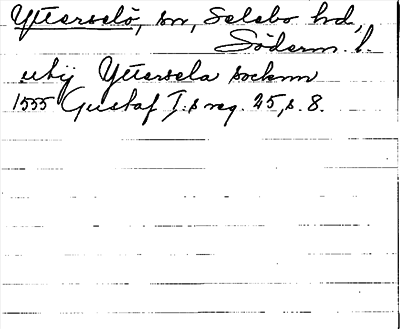 Ytterselö, sn, Selebo hd,
Söderm. l.
utij Yttersela socknn
1555 Gustaf I:s reg. 25, s. 8.